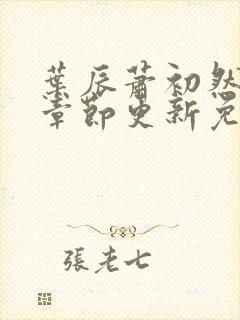 葉辰蕭初然
章節更新免
張老七